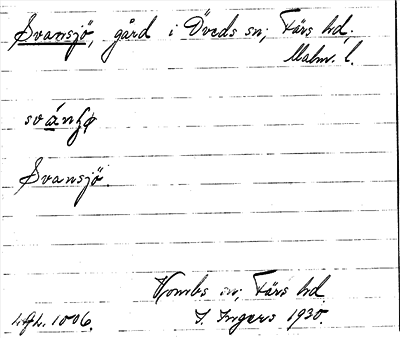 Svansjö, gård i Öveds sn; Färs hd.
Malm. l.
Svansjö.
Vombs sn; Färs hd.
1006. I. Ingers 1930.